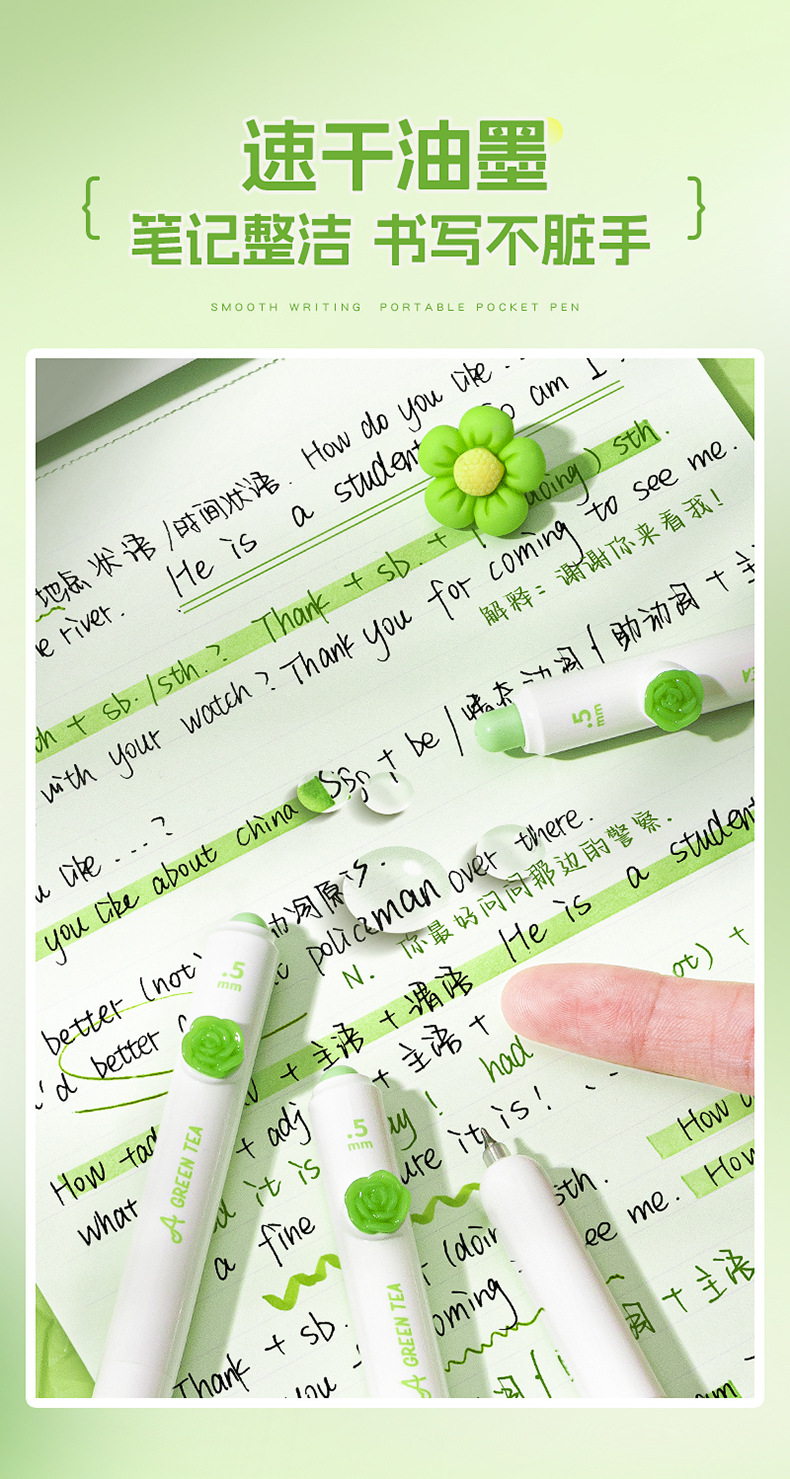 速干油墨
{ 笔记整洁 书写不脏手 }
SMOOTH WRITING PORTABLE POCKET PEN
How do you like
地点状语/时间状语.
He is a student
So am I
e river.
doing) sth.
Thank + sb. +
+ sb./sth.?
Thank you for coming to see me.
解释:谢谢你来看我!
with your watch?
助动词 + 主
+ be /
.5
mm
u like ....?
you like about china
policeman over there.
N. 你最好问问那边的警察.
He is a student
+ 主语 + 谓语
better (not)
'd better
.5
mm
+ 主语 +
had
ot) +
How
+ adj
it is!
.5
mm
How
what
it is
a fine
sth.
ee me.
A GREEN TEA
(doin
oming
+ 主语
Thank + sb.
A GREEN TEA